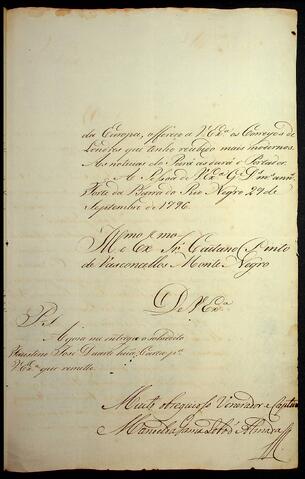 da Europa, offereço a V.Exa. os Correyos de
Londres que tenho recebido mais modernos.
As noticias do Pará as dará o Portador.
A Pessoa de V.Exa. G.e D.s m.s ann.s
Forte da Barra do Rio Negro 29 de
Septembro de 1796.
Illmo e Exmo
Sñr. Caetano Pinto
de Vasconcellos Monte Negro
De V.Exa.
P.S.
Agora me entrega o sobredito
José Duarte huã Carta p.a
V.Exa. que remetto.
Muito obrigad.o Venerador e Captivo
Manoel da Gama Lobo d'Almada